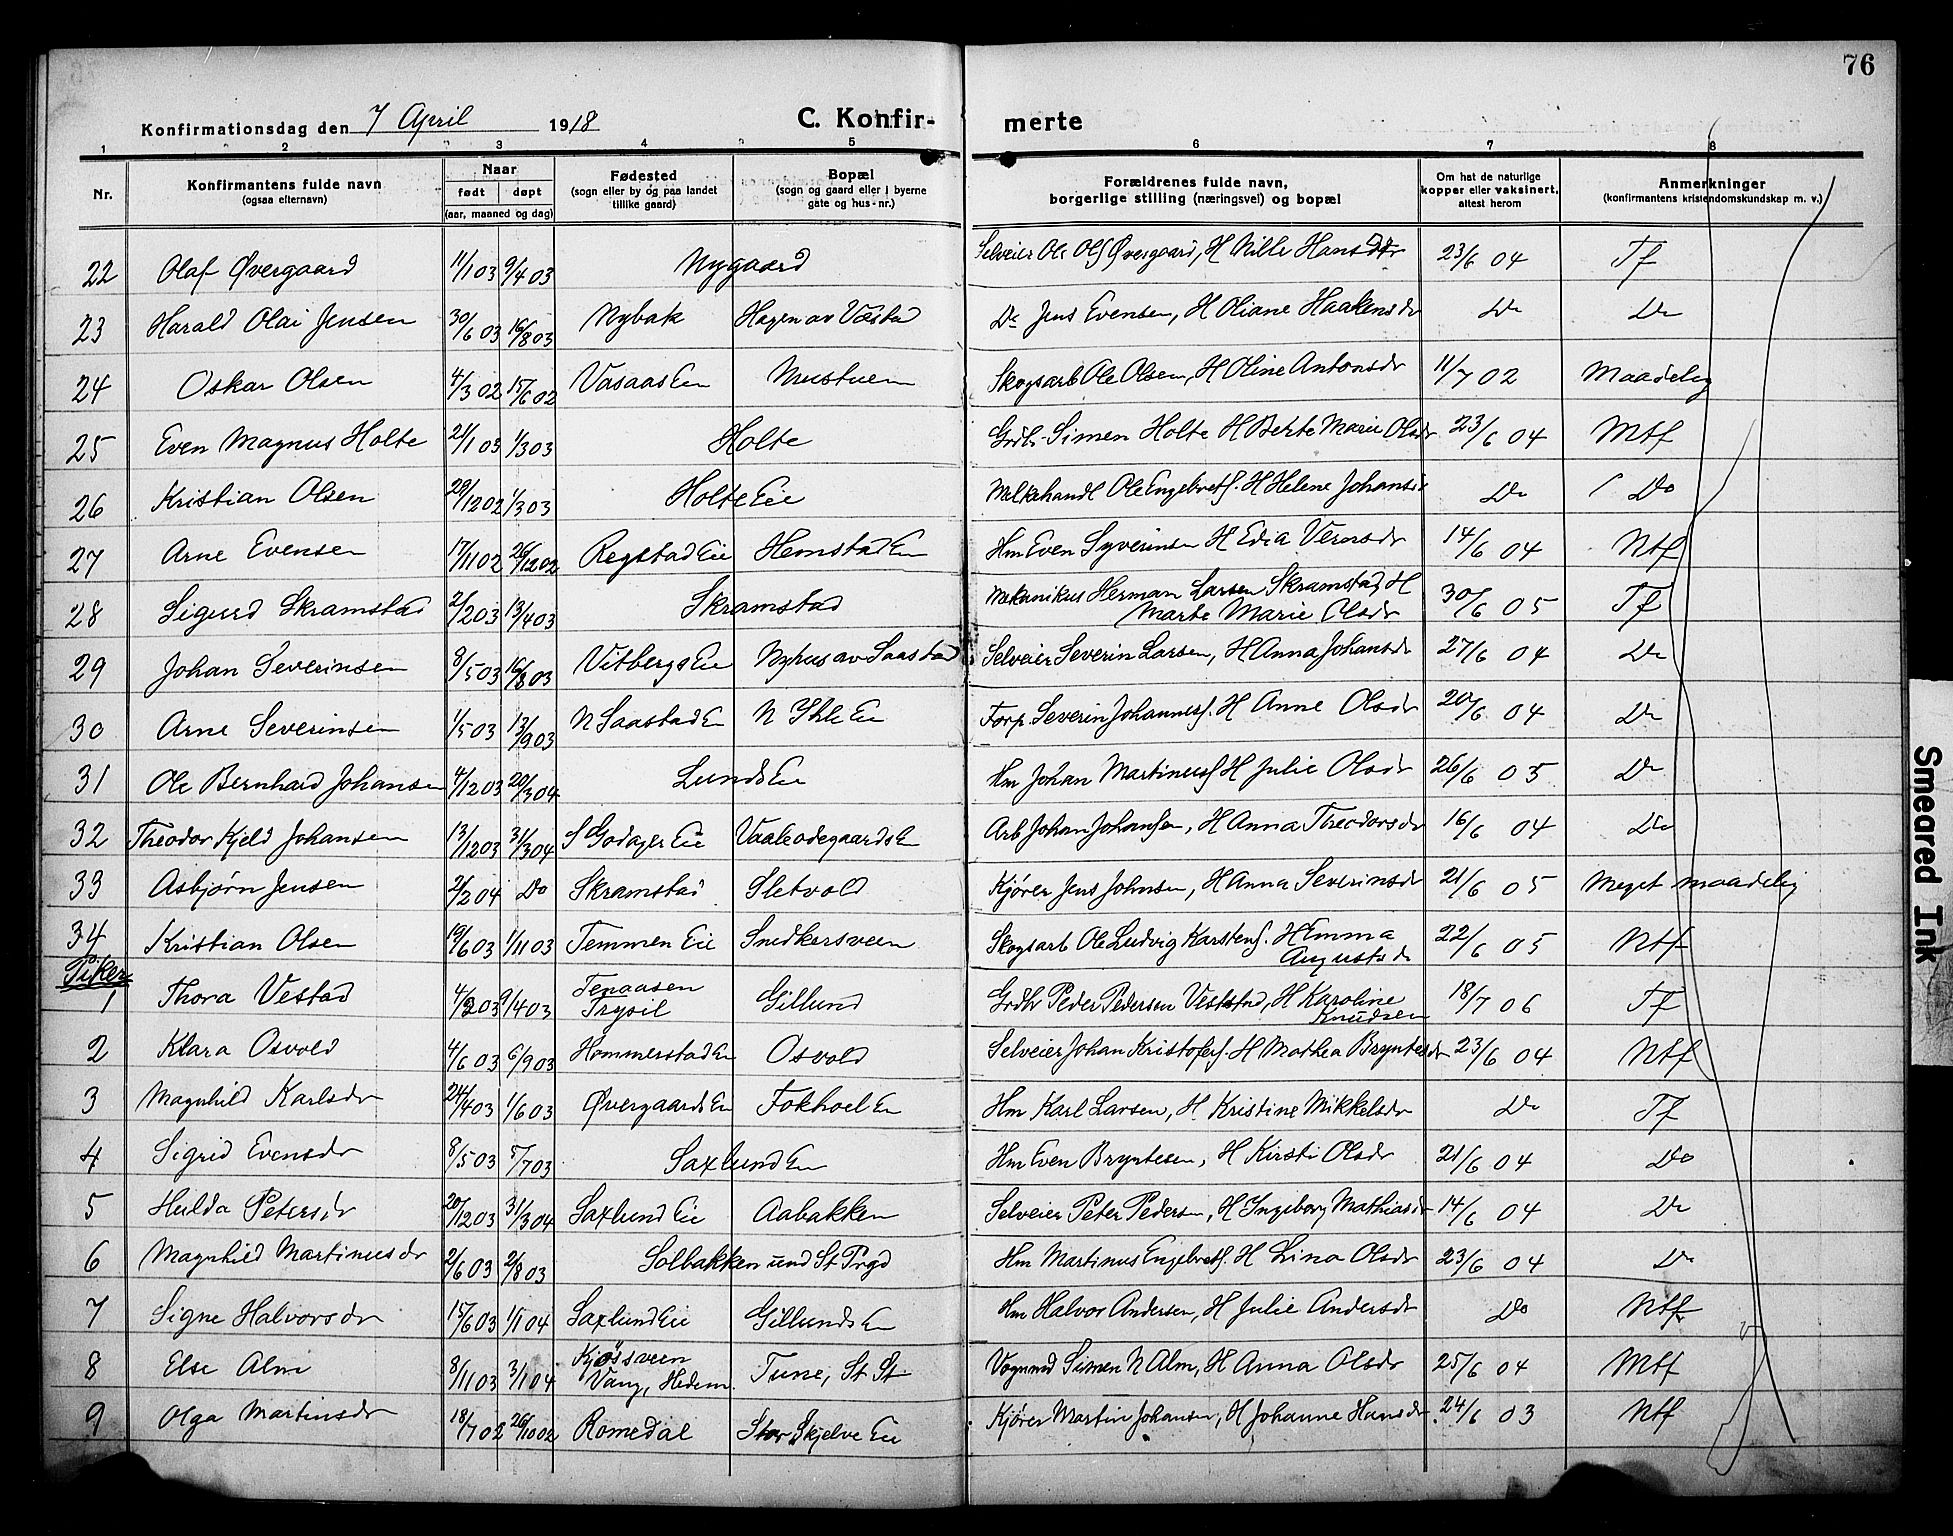 76
Konfirmationsdag den 7 April 1918 C. Konfir- merte
1 2 3 4 5 6 7 8
Nr. Konfirmantens fulde navn (ogsaa efternavn) Naar født døpt (aar, maaned og dag) Fødested (sogn eller by og paa landet tillike gaard) Bopæl (sogn og gaard eller i byerne gate og hus-nr.) Forældrenes fulde navn, borgerlige stilling (næringsvei) og bopæl Om hat de naturlige kopper eller vaksinert, attest herom Anmerkninger (konfirmantens kristendomskundskap m. v.)
22 Olaf Øvergaard 11/1 03 9/4 03 Nygaard Selveier Ole Ols Øvergaard, H Nille Hansdtr 23/6 04 Tf
23 Harald Olai Jensen 30/6 03 16/8 03 Nybak Hagen av Vestad Do Jens Evensen, H Oliane Haakensdr Do Do
24 Oskar Olsen 4/3 02 15/6 02 Vasaas Eie Mustuen Skogsarb Ole Olsen, H Oline Antonsdr 11/7 02 Maadelig
25 Even Magnus Holte 21/1 03 1/3 03 Holte Grdbr. Simen Holte H Berte Marie Olsdr 23/6 04 Mtf
26 Kristian Olsen 29/12 02 1/3 03 Holte Eie Melkehandl Ole Engebrets. H Helene Johansdr Do Do
27 Arne Evensen 17/11 02 26/12 02 Regstad Eie Hemstad Eie Hm Even Syverinsen H Edia Vernsdr 14/6 04 Ntf
28 Sigurd Skramstad 2/2 03 13/4 03 Skramstad Mekanikus Herman Larsen Skramstad, H
Marte Marie Olsdr 30/6 05 Tf
29 Johan Severinsen 8/5 03 16/8 03 Vitbergs Eie Nyhus av Saastad Selveier Severin Larsen, H Anna Johansdr 27/6 04 Do
30 Arne Severinsen 1/5 03 13/9 03 N Saastad Eie N Ihle Eie Forp. Severin Johannes. H Anne Olsdr 20/6 04 Do
31 Ole Bernhard Johansen 4/12 03 20/3 04 Lunds Eie Hm Johan Martinus. H Julie Olsdr 26/6 05 Do
32 Theodor Kjeld Johansen 13/12 03 31/3 04 S Godager Eie Vaaleodegaards Eie Arb Johan Johansen, H Anna Theodorsdr 16/6 04 Do
33 Asbjørn Jensen 2/2 04 Do Skramstad Sletvold Kjører Jens Johnsen, H Anna Severinsdr 21/6 05 Meget maadelig
34 Kristian Olsen 19/6 03 1/11 03 Temmen Eie Snekkersveen Skogsarb Ole Ludvig Karstens. H Emma
Augustsdr 22/6 05 Ntf
Piker
1 Thora Vestad 4/2 03 9/4 03 Tenaasen
Trysil Gillund Grdbr Peder Pedersen Vestad, H Karoline
Knudsen 18/7 06 Tf
2 Klara Osvold 4/6 03 6/9 03 Hommerstad Eie Osvold Selveier Johan Kristofers. H Mathea Bryntesdr 23/6 04 Ntf
3 Magnhild Karlsdr 24/4 03 1/6 03 Øvergaards Eie Fokhoel Eie Hm Karl Larsen, H Kristine Mikkelsdr Do Tf
4 Sigrid Evensdr 8/5 03 5/7 03 Saxlund Eie Hm Even Bryntesen, H Kirsti Olsdr 21/6 04 Do
5 Hulda Petersdr 20/12 03 31/3 04 Saxlund Eie Aabakken Selveier Peter Pedersen, H Ingeborg Mathiasdr 14/6 04 Do
6 Magnhild Martinusdr 2/6 03 2/8 03 Solbakken und St Prgd Hm Martinus Engebrets. H Lina Olsdr 23/6 04 Do
7 Signe Halvorsdr 15/6 03 1/1 04 Saxlund Eie Gillunds Eie Hm Halvor Andersen, H Julie Andersdr Do Ntf
8 Else Alm 8/11 03 3/1 04 Kjøssveen
Vang, Hedem. Tune, St St Vognmd Simen N Alm, H Anna Olsdr 25/6 04 Mtf
9 Olga Martinsdr 18/7 02 26/10 02 Romedal Stor Skjelve Eie Kjører Martin Johansen, H Johanne Hansdr 24/6 03 Ntf
Smeared Ink